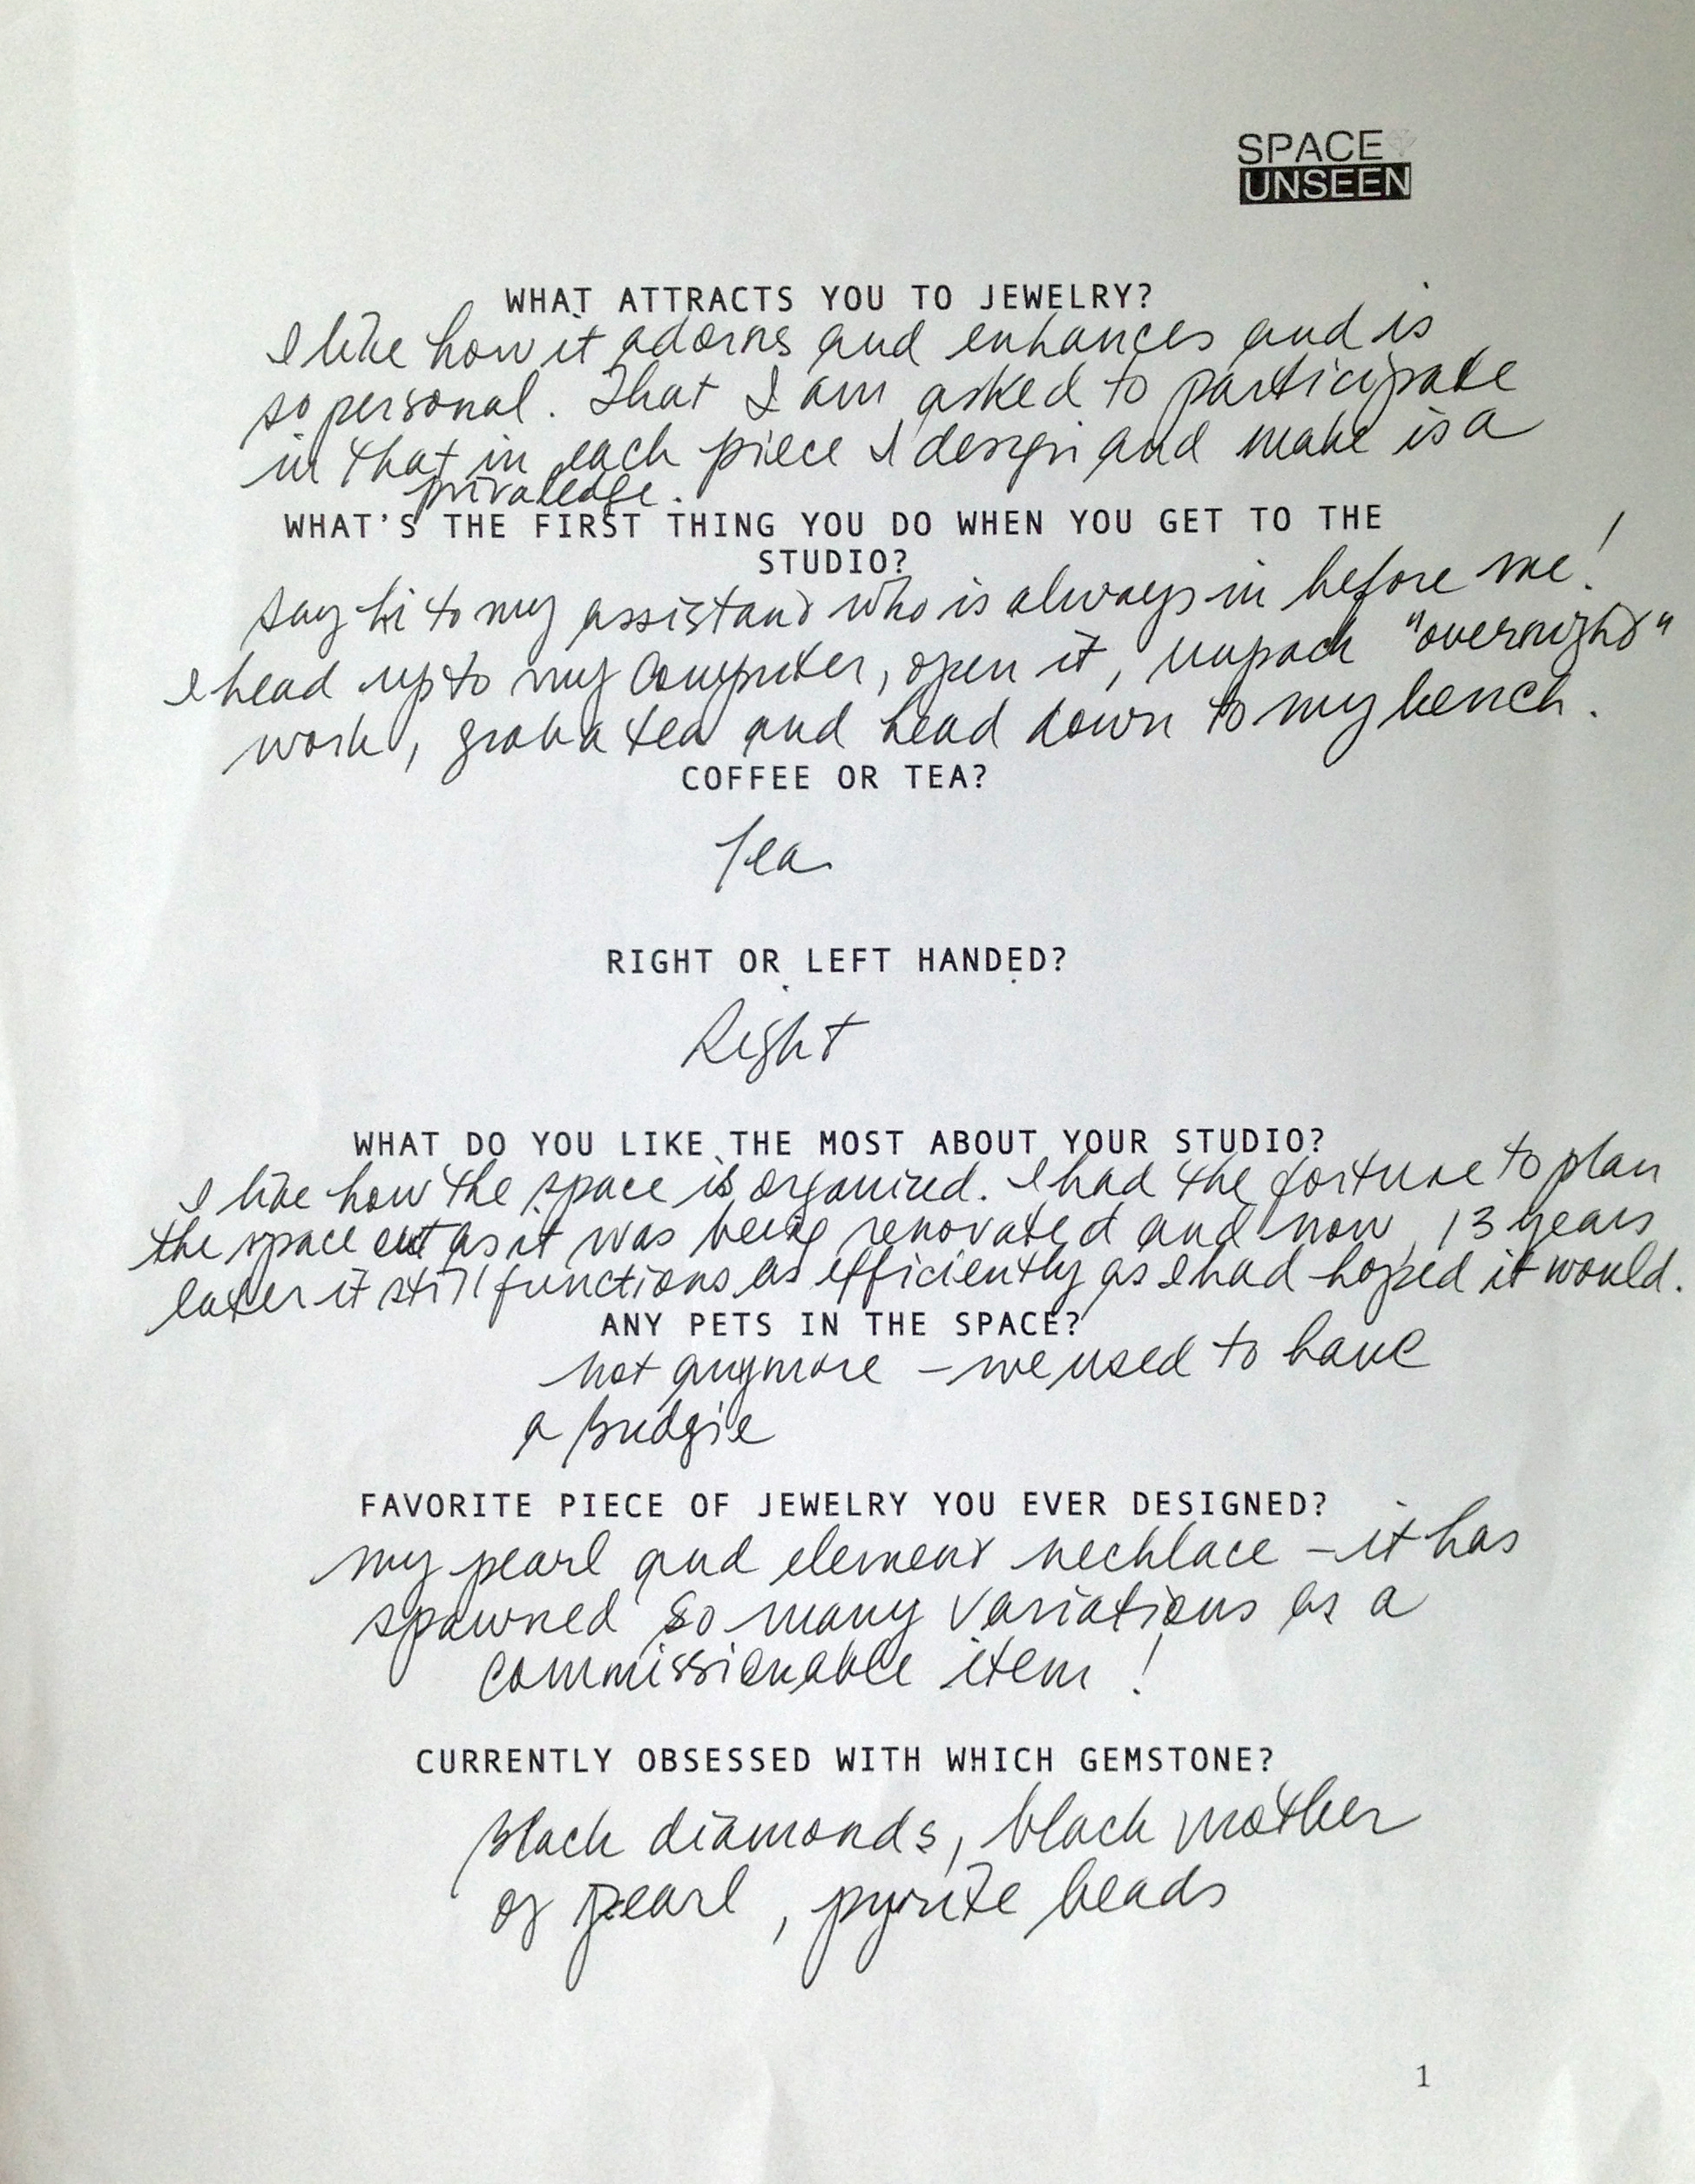 SPACE
UNSEEN
WHAT ATTRACTS YOU TO JEWELRY?
I like how it adorns and enhances and is
so personal. That I am asked to participate
in that in each piece I design and make is a
privaledge.
WHAT'S THE FIRST THING YOU DO WHEN YOU GET TO THE
STUDIO?
Say hi to my assistant who is always in before me!
I head up to my computer, open it, unpack "overnight"
work, grab a tea and head down to my bench.
COFFEE OR TEA?
Tea
RIGHT OR LEFT HANDED?
Right
WHAT DO YOU LIKE THE MOST ABOUT YOUR STUDIO?
I like how the space is organized. I had the fortune to plan
the space out as it was being renovated and now, 13 years
later it still functions as efficiently as I had hoped it would.
ANY PETS IN THE SPACE?
not anymore - we used to have
a Budgie
FAVORITE PIECE OF JEWELRY YOU EVER DESIGNED?
my pearl and element necklace - it has
spawned so many variations as a
commissionable item!
CURRENTLY OBSESSED WITH WHICH GEMSTONE?
Black diamonds, black mother
of pearl, pyrite beads
1